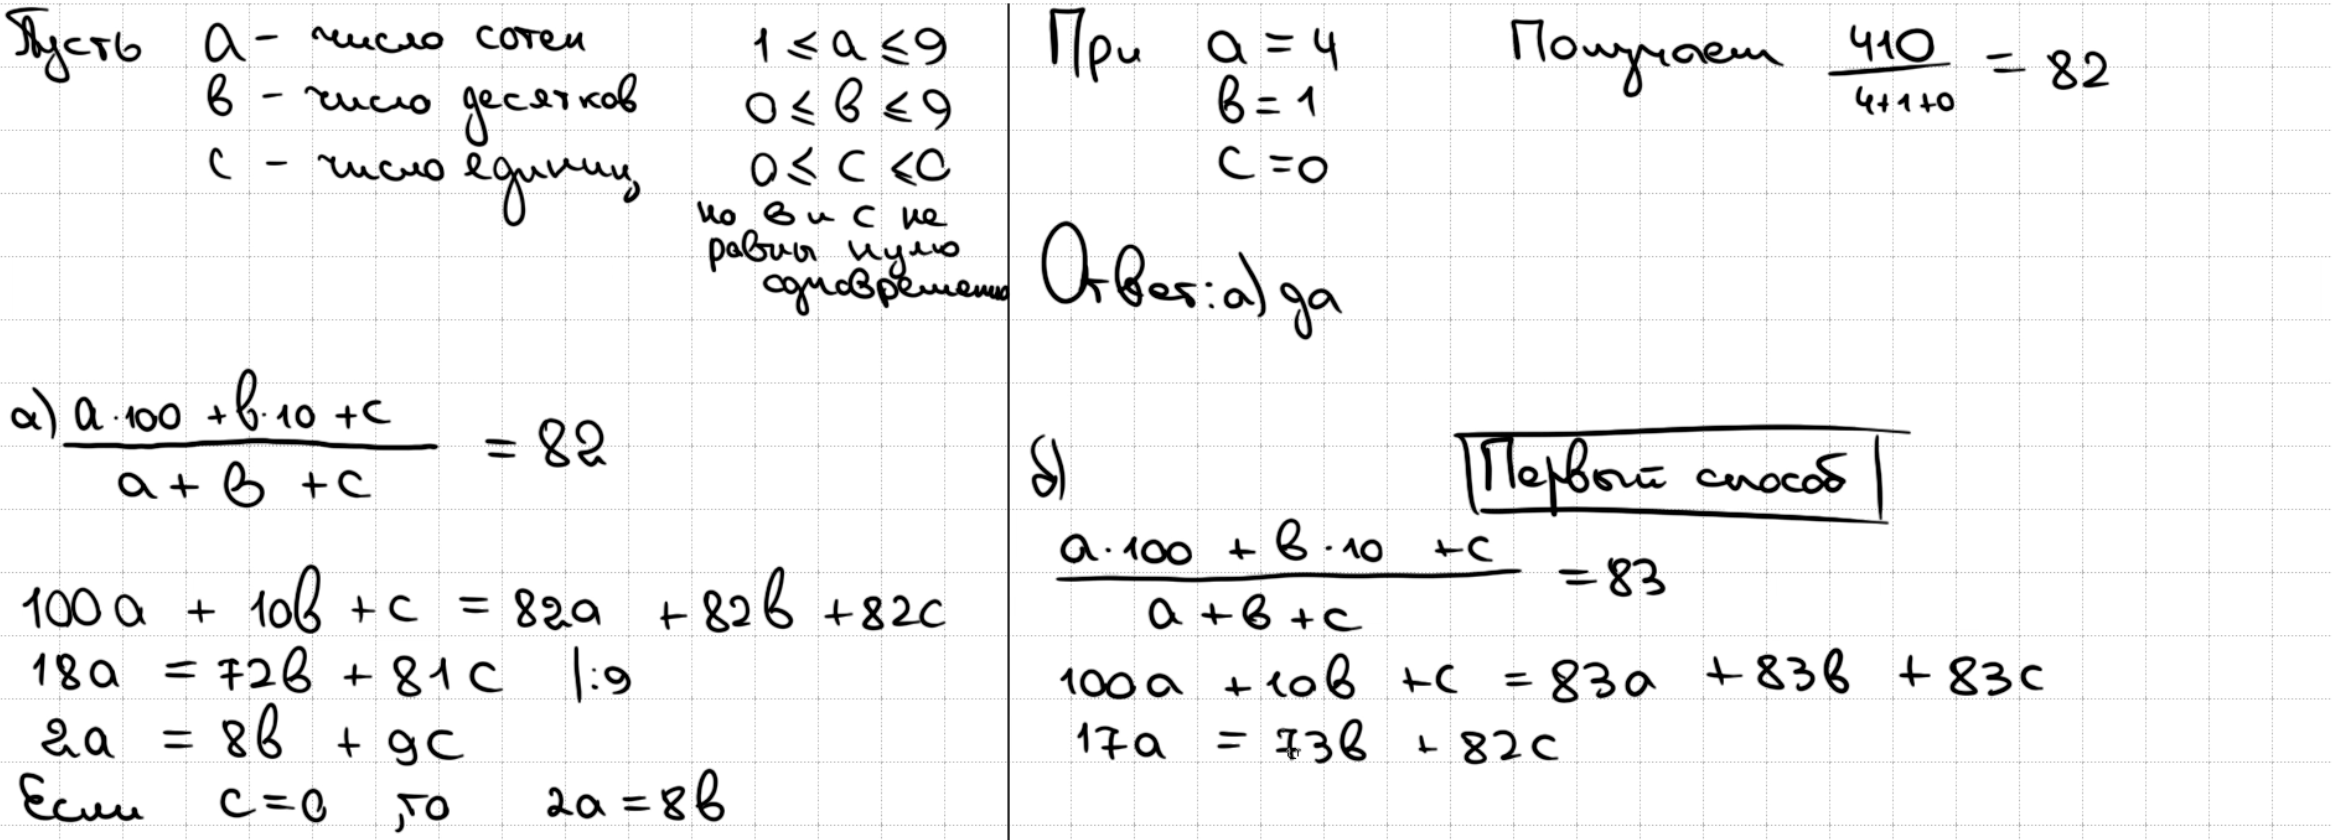 Пусть a – число сотен 1 ≤ a ≤ 9
в – число десятков 0 ≤ в ≤ 9
c – число единиц, 0 ≤ c ≤ 0
но в и с не
равны нулю
одновременно
а) (a·100 + в·10 + c) / (a + в + c) = 82
100a + 10в + c = 82a + 82в + 82c
18a = 72в + 81c |:9
2a = 8в + 9c
Если c = 0, то 2a = 8в
При a = 4 Получаем 410 / (4+1+0) = 82
в = 1
c = 0
Ответ: а) да
б) Первый способ
(a·100 + в·10 + c) / (a + в + c) = 83
100a + 10в + c = 83a + 83в + 83c
17a = 73в + 82c